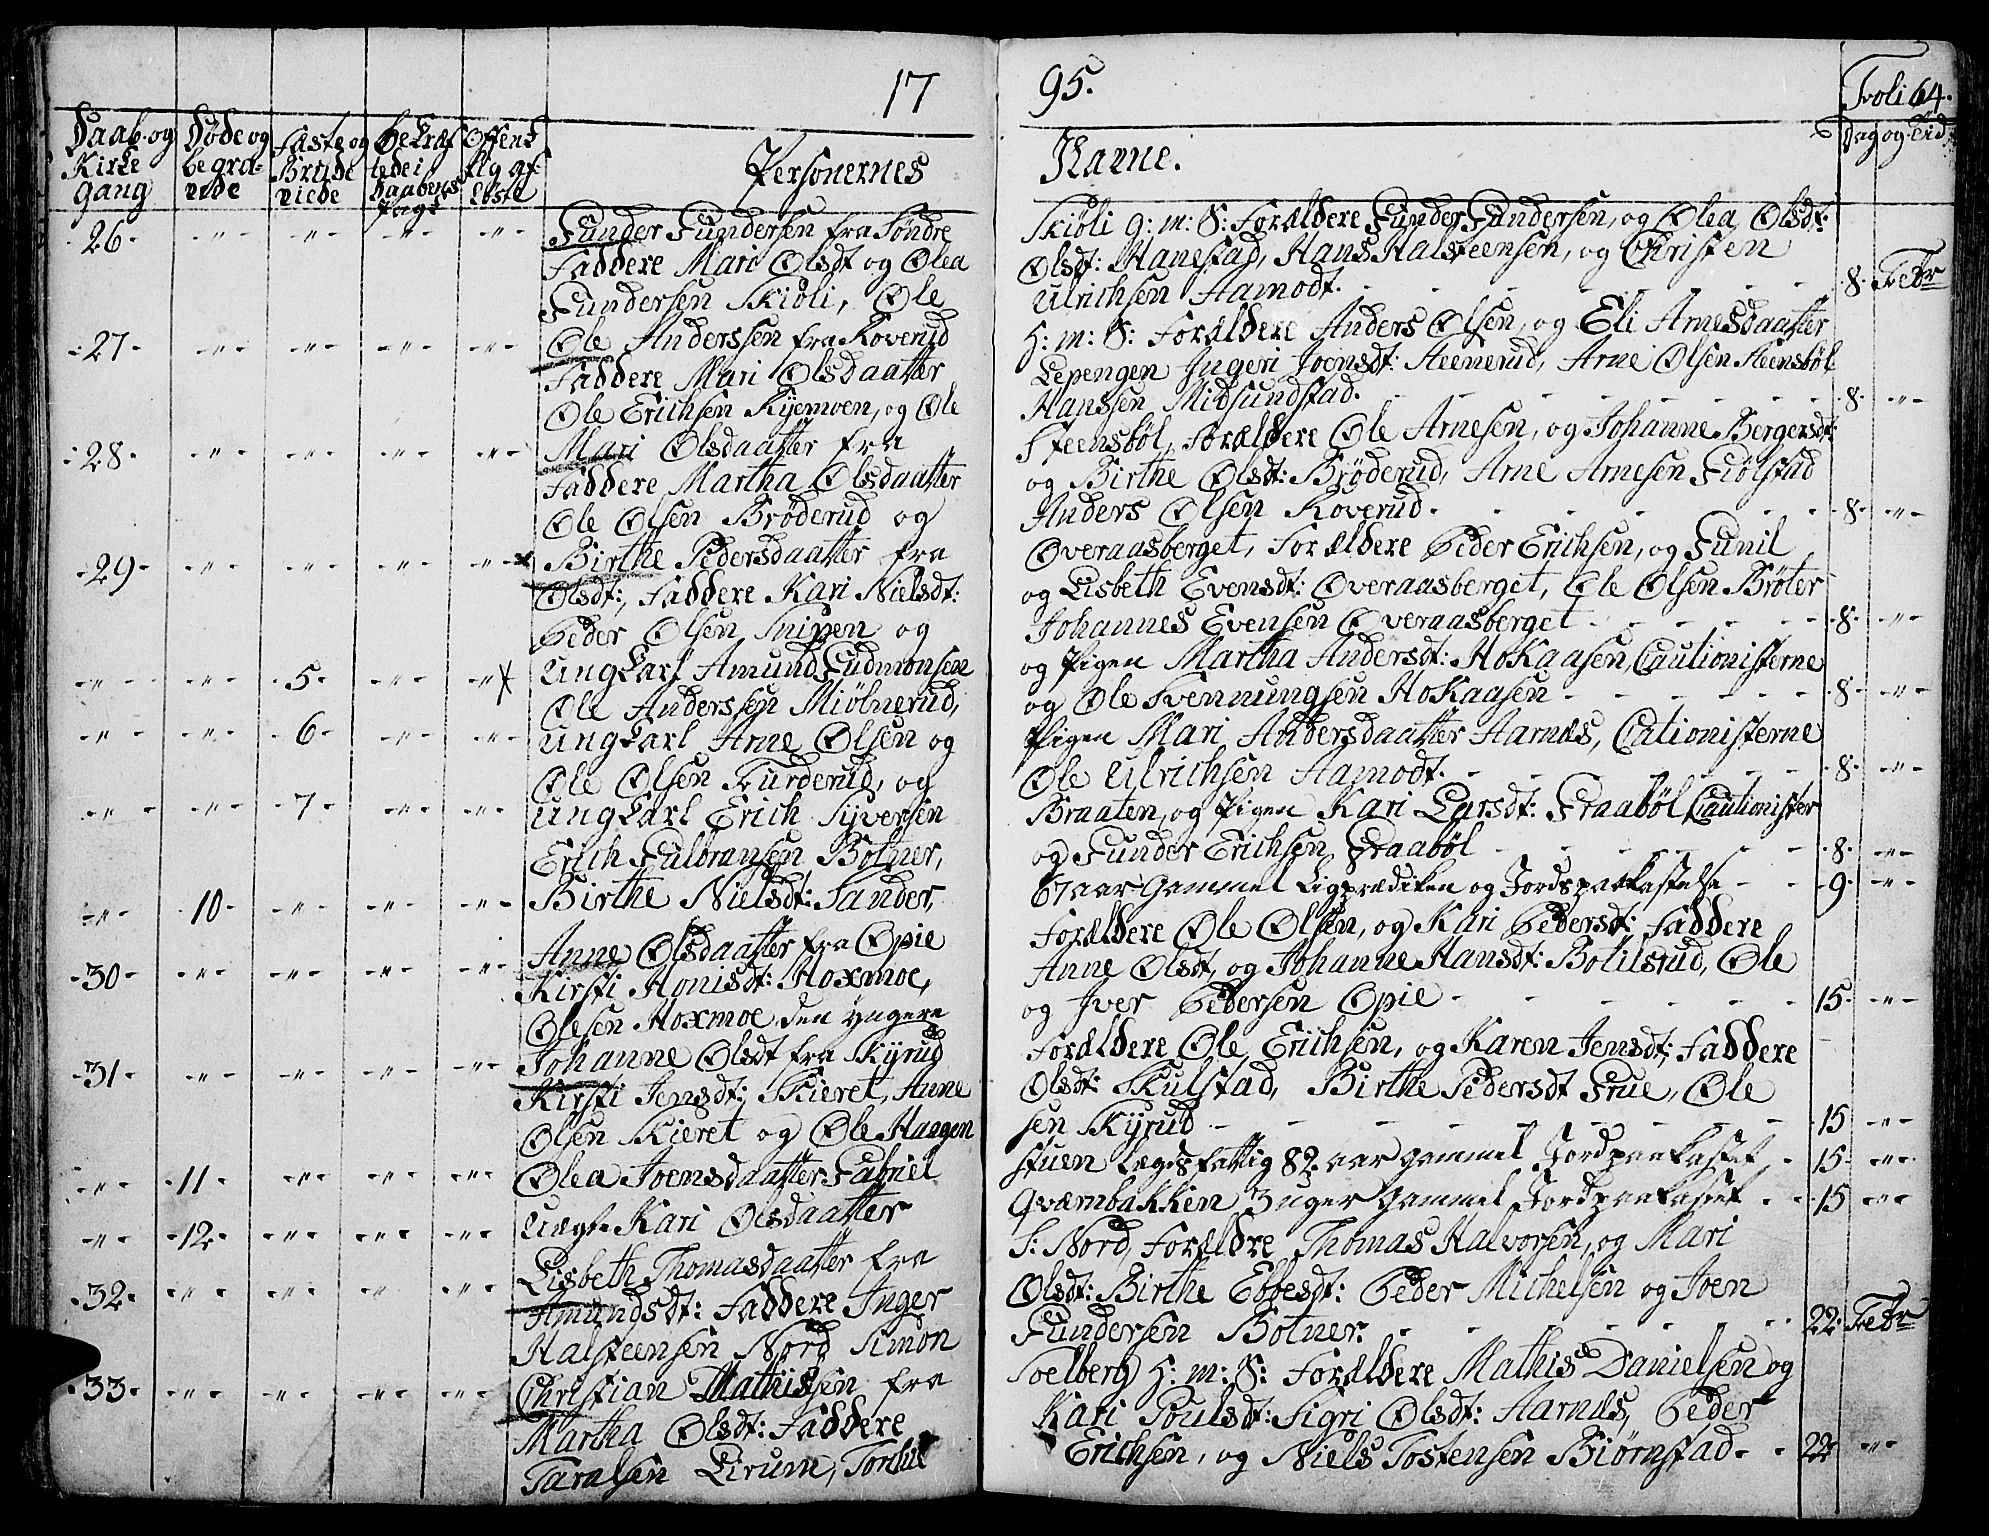 17
95.
Folie 64.
Daab og
Kirke
gang
Døde og
begra-
vede
Faste og
Brude
viede
Bekræf
tede i
Daabens
Pagt
Offent
lig af
løste
Personernes
Navne.
Dag og Tid
26 Gunder Gundersen fra Søndre
Skiøli H: m: S: Forældere Gunder Gundersen, og Olea Olsdt:
Faddere Mari Olsdt og Olea
Olsdt: Hanestad, Hans Halsteensen, og Christen
Gundersen Skiøli, Ole
Ulrichsen Aamodt. 8. Febr
27 Ole Anderssen fra Roverud
H: m: S: Forældere Anders Olsen, og Eli Arnesdaatter
Faddere Mari Olsdaatter
Lepengen Ingeri Joensdt: Heenerud, Arne Olsen Steensbøl
Ole Erichsen Kyemoen, og Ole
Hanssen Midsundstad. 8.
28 Mari Olsdaatter fra
Steensbøl, Forældere Ole Arnesen, og Johanne Bergersdt:
Faddere Martha Olsdaatter
og Birthe Olsdt: Brøderud, Arne Arnesen Fiølstad
Ole Olsen Brøderud og
Anders Olsen Roverud. 8.
29 Birthe Pedersdaatter fra
Overaasberget, Forældere Peder Erichsen, og Gunil
Olsdt:, Faddere Kari Nielsdt:
og Lisbeth Evensdt: Overaasberget, Ole Olsen Brøter
Peder Olsen Snipen og
Johannes Evensen Overaasberget 8.
5 Ungkarl Amund Gudmonsen
og Pigen Martha Andersdt: Hokaasen, Cautionisterne
Ole Anderssen Miølnerud,
og Ole Svennungsen Hokaasen 8.
6 Ungkarl Arne Olsen og
Pigen Mari Andersdaatter Aarnæs, Cationisterne
Ole Olsen Furderud, og
Ole Ulrichsen Aamodt. 8.
7 Ungkarl Erich Syversen
Braaten, og Pigen Kari Larsdt: Fraabøl Cautionister
Erich Gulbransen Botner,
og Gunder Erichsen Fraabøl 8.
10 Birthe Nielsdt: Sander,
67 aar Gammel Ligprædiken og Jordspaakastelse 9.
30 Anne Olsdaatter fra Opie
Forældere Ole Olsen, og Kari Pedersdt: Faddere
Kirsti Monisdt: Hoxmoe,
Anne Olsdt, og Johanne Hansdt: Botilsrud, Ole
Olesen Hoxmoe den yngere
og Iver Pedersen Opie 15.
31 Johanne Olsdt fra Skyrud
Forældere Ole Erichsen, og Karen Jensdt: Faddere
Kirsti Jensdt: Skieret, Anne
Olsdt: Skulstad, Birthe Pedersdt Frue, Ole
Olsen Skieret og Ole Haagen
sen Skyrud 15
11 Olea Joensdaatter Gabriel
stuen Lægdsfattig 82 aar Gammel Jordpaakastet 15.
12 Unge Kari Olsdaatter
Qværnbakken 3 uger Gammel Jordpaakastet 15
32 Lisbeth Thomasdaatter fra
S: Nord, Forældre Thomas Halvorsen, og Mari
Amundsdt: Faddere Inger
Olsdt: Birthe Ebbesdt: Peder Michelsen og Joen
Halsteensen Nord Simon
Gundersen Botner. 22. Febr
33 Christian Mathisen fra
Soelberg H: m: S: Forældere Mathis Danielsen og
Martha Olsdt: Faddere
Kari Poulsdt: Sigri Olsdt: Aarnæs, Peder
Taralsen Lirum, Torkil
Erichsen, og Niels Tostensen Biørnstad 22